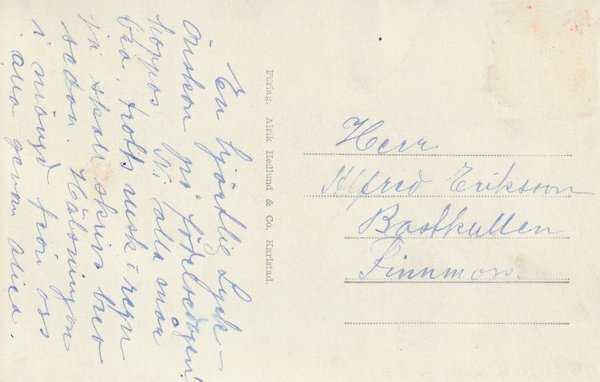 En hjärtlig Lyck-
önskan på födelsedagen!
hoppas Ni alla mår
bra. trotts rusk o regn
ja skall skriva brev
sedan. Hälsningar
i mängd från oss
alla genom Alice.
Förlag. Alrik Hedlund & Co. Karlstad.
Herr
Alfred Eriksson
Bastkullen
Finnmossen